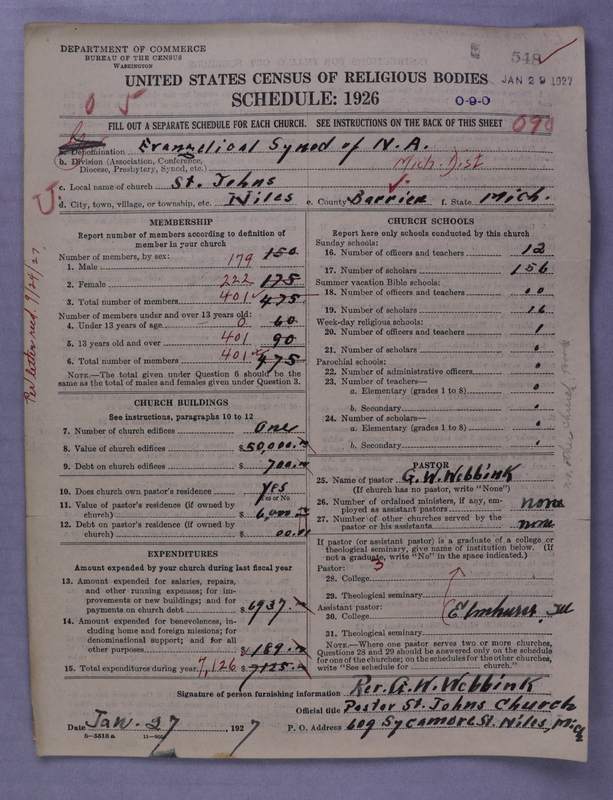 DEPARTMENT OF COMMERCE
BUREAU OF THE CENSUS
WASHINGTON
548
JAN 29 1927
UNITED STATES CENSUS OF RELIGIOUS BODIES
SCHEDULE: 1926
0-9-0
0 5
FILL OUT A SEPARATE SCHEDULE FOR EACH CHURCH. SEE INSTRUCTIONS ON THE BACK OF THIS SHEET
090
a. Denomination Evangelical Synod of N.A.
b. Division (Association, Conference, Diocese, Presbytery, Synod, etc.) Mich. Dist
c. Local name of church St. Johns
d. City, town, village, or township, etc. Niles e. County Barrien f. State Mich.
Per letter recd. 9/24/27
MEMBERSHIP
Report number of members according to definition of
member in your church
Number of members, by sex:
1. Male 179 150
2. Female 222 175
3. Total number of members 401 475
Number of members under and over 13 years old:
4. Under 13 years of age 0 60
5. 13 years old and over 401 90
6. Total number of members 401 475
NOTE.—The total given under Question 6 should be the
same as the total of males and females given under Question 3.
CHURCH BUILDINGS
See instructions, paragraphs 10 to 12
7. Number of church edifices One
8. Value of church edifices $50,000.
9. Debt on church edifices $ 700.
10. Does church own pastor's residence Yes
Yes or No
11. Value of pastor's residence (if owned by
church) $ 6,000
12. Debt on pastor's residence (if owned by
church) $ 00.
EXPENDITURES
Amount expended by your church during last fiscal year
13. Amount expended for salaries, repairs,
and other running expenses; for im-
provements or new buildings; and for
payments on church debt $ 6937.
14. Amount expended for benevolences, in-
cluding home and foreign missions; for
denominational support; and for all
other purposes $ 189.
15. Total expenditures during year 7,126 $ 7125.
CHURCH SCHOOLS
Report here only schools conducted by this church
Sunday schools:
16. Number of officers and teachers 12
17. Number of scholars 156
Summer vacation Bible schools:
18. Number of officers and teachers 00
19. Number of scholars 16
Week-day religious schools:
20. Number of officers and teachers 1
21. Number of scholars 0
Parochial schools:
22. Number of administrative officers 0
23. Number of teachers—
a. Elementary (grades 1 to 8) 0
b. Secondary
24. Number of scholars—
a. Elementary (grades 1 to 8) 0
b. Secondary
PASTOR
25. Name of pastor G. W. Webbink
(If church has no pastor, write "None")
26. Number of ordained ministers, if any, em-
ployed as assistant pastors none
27. Number of other churches served by the
pastor or his assistants none
If pastor (or assistant pastor) is a graduate of a college or
theological seminary, give name of institution below. (If
not a graduate, write "No" in the space indicated.)
Pastor: 3
28. College
29. Theological seminary
Assistant pastor: Elmhurst, Ill
30. College
31. Theological seminary
NOTE.—Where one pastor serves two or more churches,
Questions 28 and 29 should be answered only on the schedule
for one of the churches; on the schedules for the other churches,
write "See schedule for church."
Signature of person furnishing information Rev. G. W. Webbink
Official title Pastor St. Johns Church
Date Jan. 27, 1927 P. O. Address 609 Sycamore St. Niles, Mich
8-5518 a